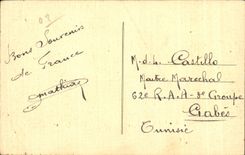 03
Bons Souvenirs
de France
Mathieu
M. d. L. Castillo
Maitre Marechal
62e R.A.A - 8e Groupe
Gabès
Tunisie